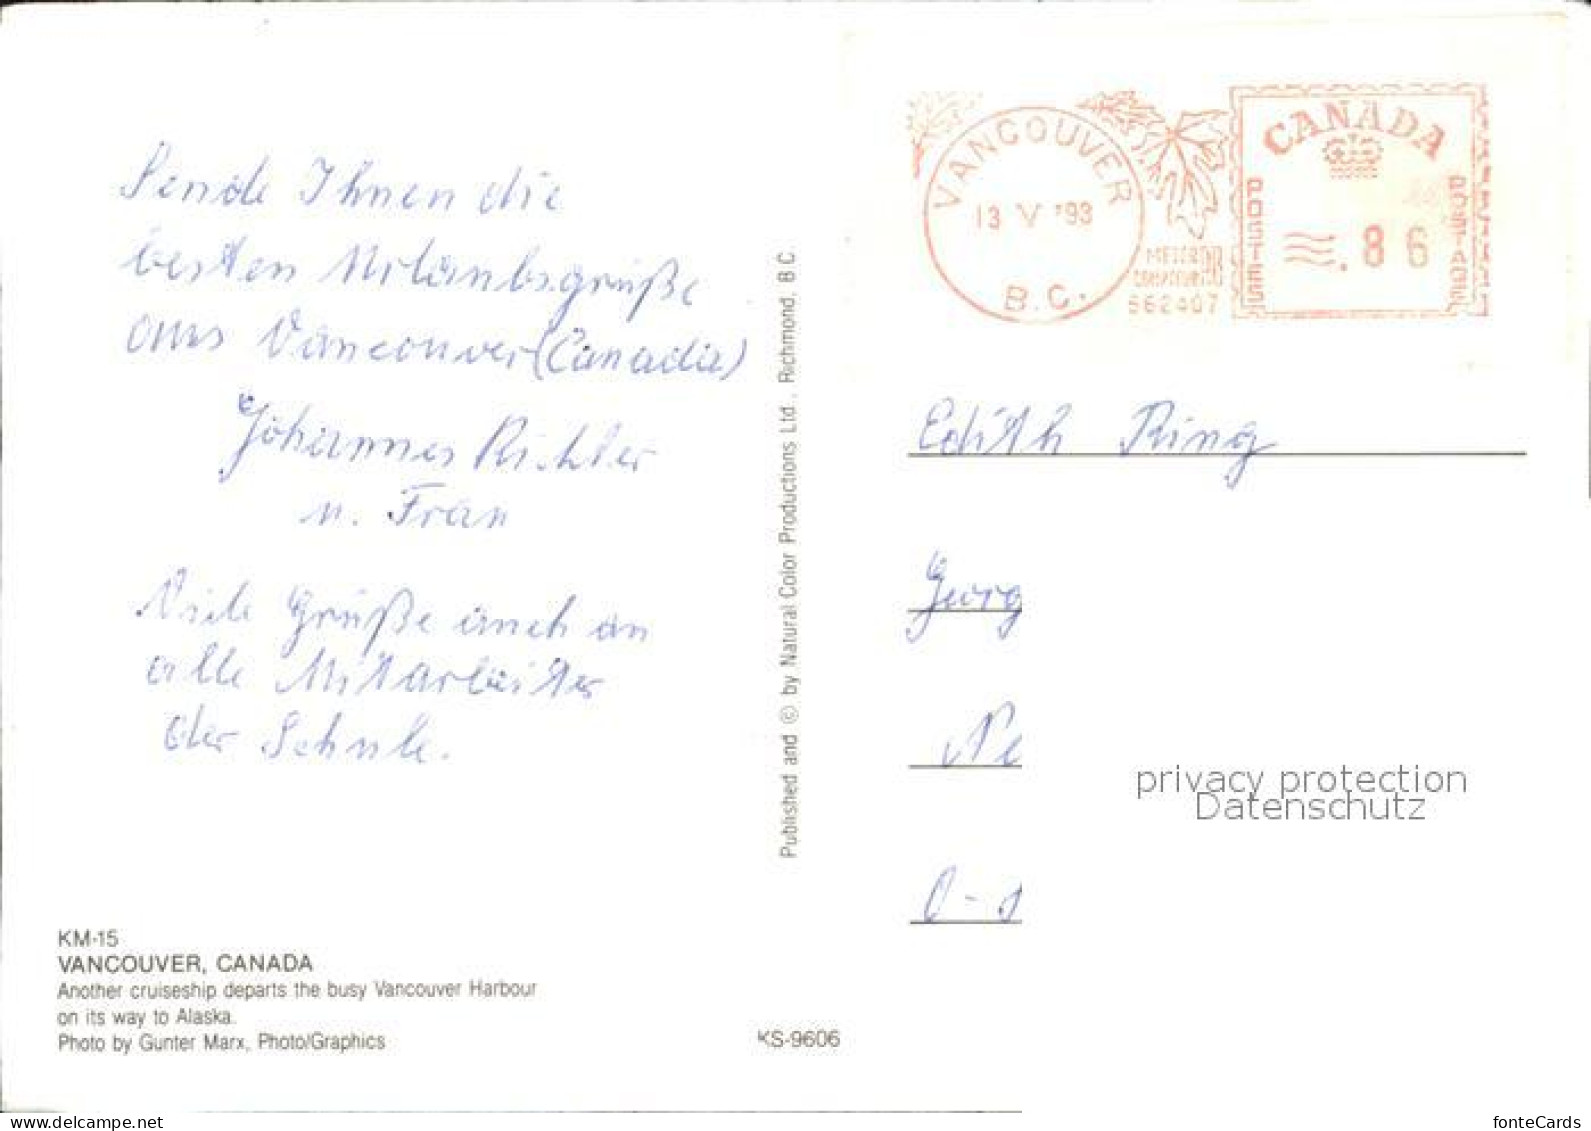 Sende Ihnen die
besten Urlaubsgrüße
aus Vancouver (Canada)
Johannes Richter
u. Frau
Viele Grüße auch an
alle Mitarbeiter
der Schule.
KM-15
VANCOUVER, CANADA
Another cruiseship departs the busy Vancouver Harbour
on its way to Alaska.
Photo by Gunter Marx, Photo/Graphics
KS-9606
Published and © by Natural Color Productions Ltd., Richmond, B.C.
VANCOUVER
13 V '93
B.C.
METER
662407
CANADA
POSTES
POSTAGE
.86
Edith Ring
Georg
Ne
O-
privacy protection
Datenschutz
www.delcampe.net
fonteCards